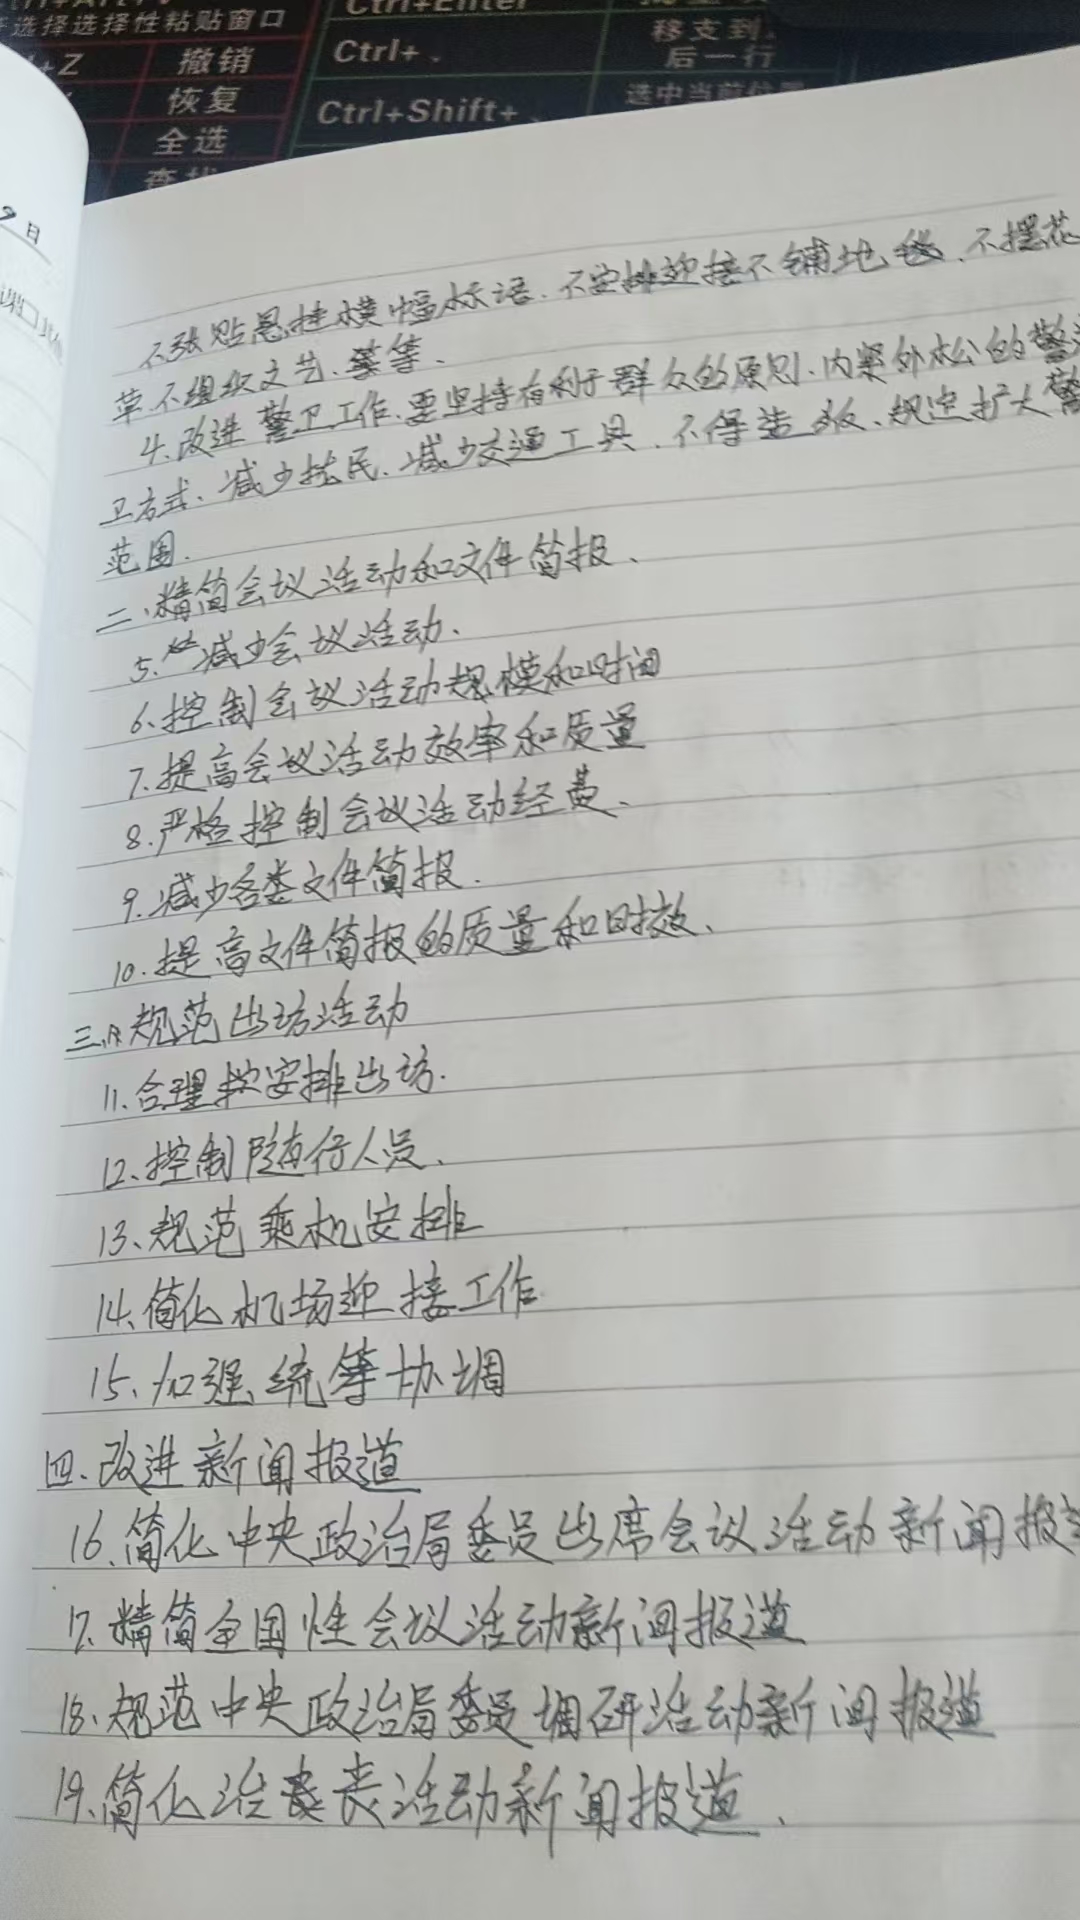 选择选择性粘贴窗口
Ctrl+Enter
+Z 撤销
Ctrl+、
移支到
后一行
恢复
Ctrl+Shift+、
选中当前
全选
9日
课□其他
不张贴悬挂横幅标语、不安排迎接不铺地毯、不摆花
草、不组织文艺、等、
4、改进警卫工作、要坚持有利于群众的原则、内紧外松的警
卫方式、减少扰民、减少交通工具、不得违反、规定扩大警
范围、
二、精简会议活动和文件简报、
5、减少会议活动、
6、控制会议活动规模和时间
7、提高会议活动效率和质量
8、严格控制会议活动经费、
9、减少各类文件简报、
10、提高文件简报的质量和时效、
三、规范出访活动
11、合理安排出访、
12、控制随行人员、
13、规范乘机安排
14、简化机场迎接工作
15、加强统筹协调
四、改进新闻报道
16、简化中央政治局委员出席会议活动新闻报道
17、精简全国性会议活动新闻报道
18、规范中央政治局委员调研活动新闻报道
19、简化治丧活动新闻报道、